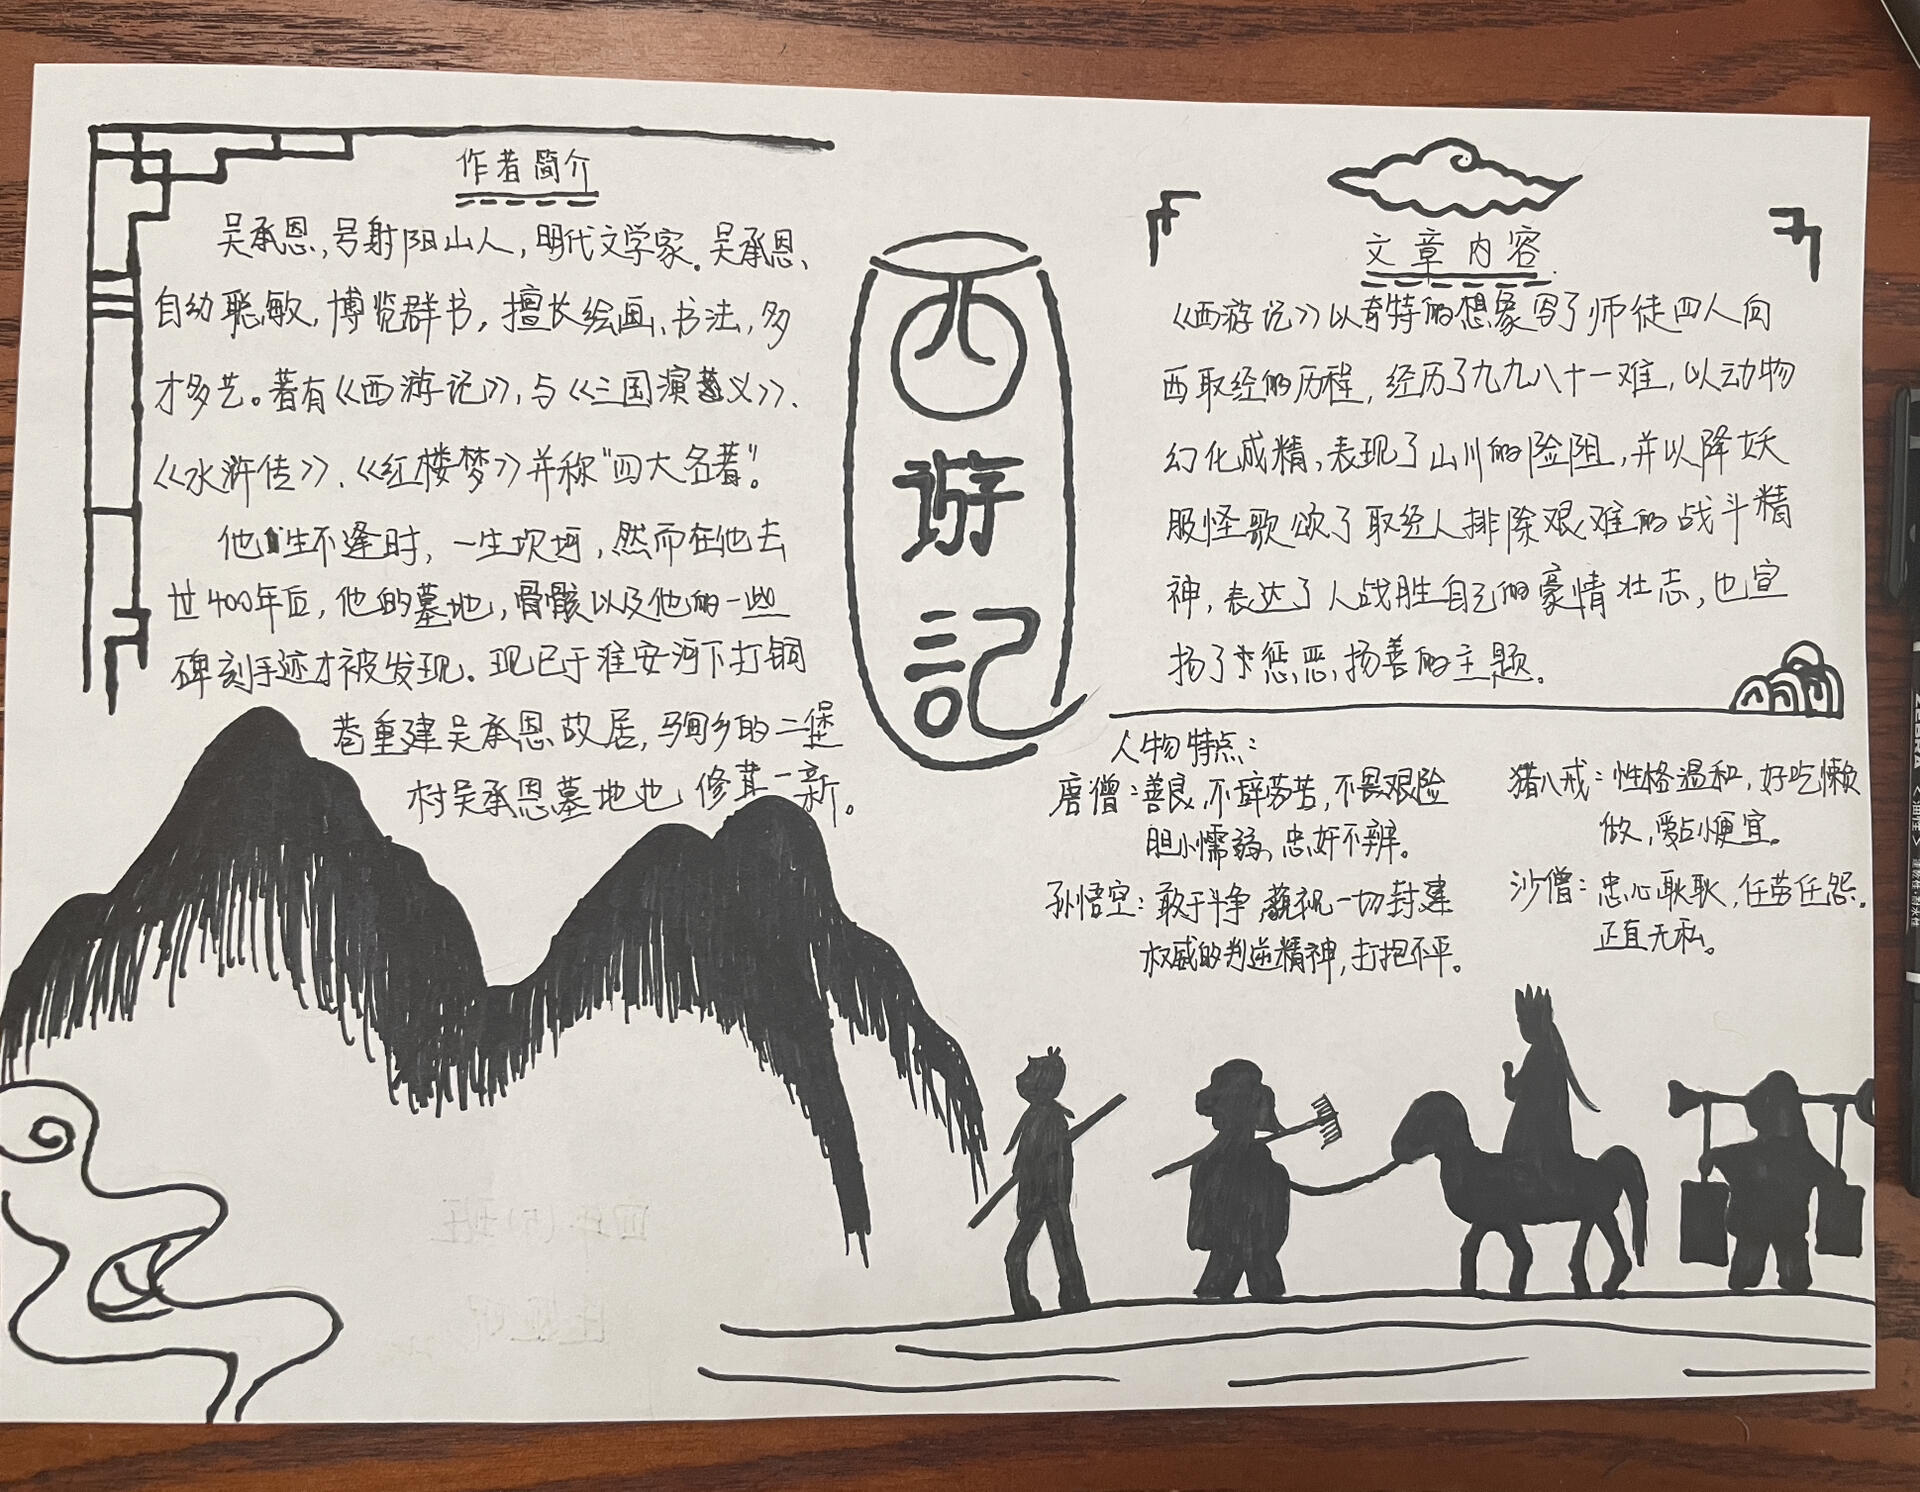 作者简介
吴承恩,号射阳山人,明代文学家.吴承恩、
自幼聪敏,博览群书,擅长绘画、书法,多
才多艺。著有《西游记》,与《三国演义》、
《水浒传》、《红楼梦》并称"四大名著"。
他生不逢时,一生坎坷,然而在他去
世400年后,他的墓地,骨骸以及他的一些
碑刻手迹才被发现。现已于淮安河下打铜
巷重建吴承恩故居,马甸乡的二堡
村吴承恩墓地也修葺一新。
西游記
文章内容.
《西游记》以奇特的想象写了师徒四人向
西取经的历程,经历了九九八十一难,以动物
幻化成精,表现了山川的险阻,并以降妖
服怪歌颂了取经人排除艰难的战斗精
神,表达了人战胜自己的豪情壮志,也宣
扬了惩恶,扬善的主题。
人物特点:
唐僧:善良,不辞劳苦,不畏艰险
胆小懦弱,忠奸不辨。
孙悟空:敢于斗争,藐视一切封建
权威的判逆精神,打抱不平。
猪八戒:性格温和,好吃懒
做,爱占小便宜。
沙僧:忠心耿耿,任劳任怨.
正直无私。
ZEBRA